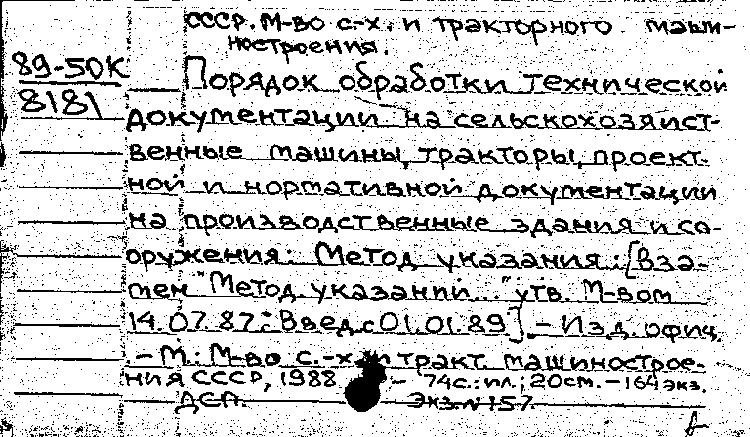 СССР. М-во с.-х. и тракторного маши-
ностроения.
89-50К
8181
Порядок обработки технической
документации на сельскохозяйст-
венные машины, тракторы, проект-
ной и нормативной документации
на производственные здания и со-
оружения: Метод. указания: [Вза-
мен "Метод. указаний..." утв. М-вом
14.07.87: Введ. с 01.01.89]. - Изд. офиц.
- М.: М-во с.-х. и тракт. машинострое-
ния СССР, 1988 - 74с.: ил.; 20см. - 164 экз.
ДСП. Экз. N157.